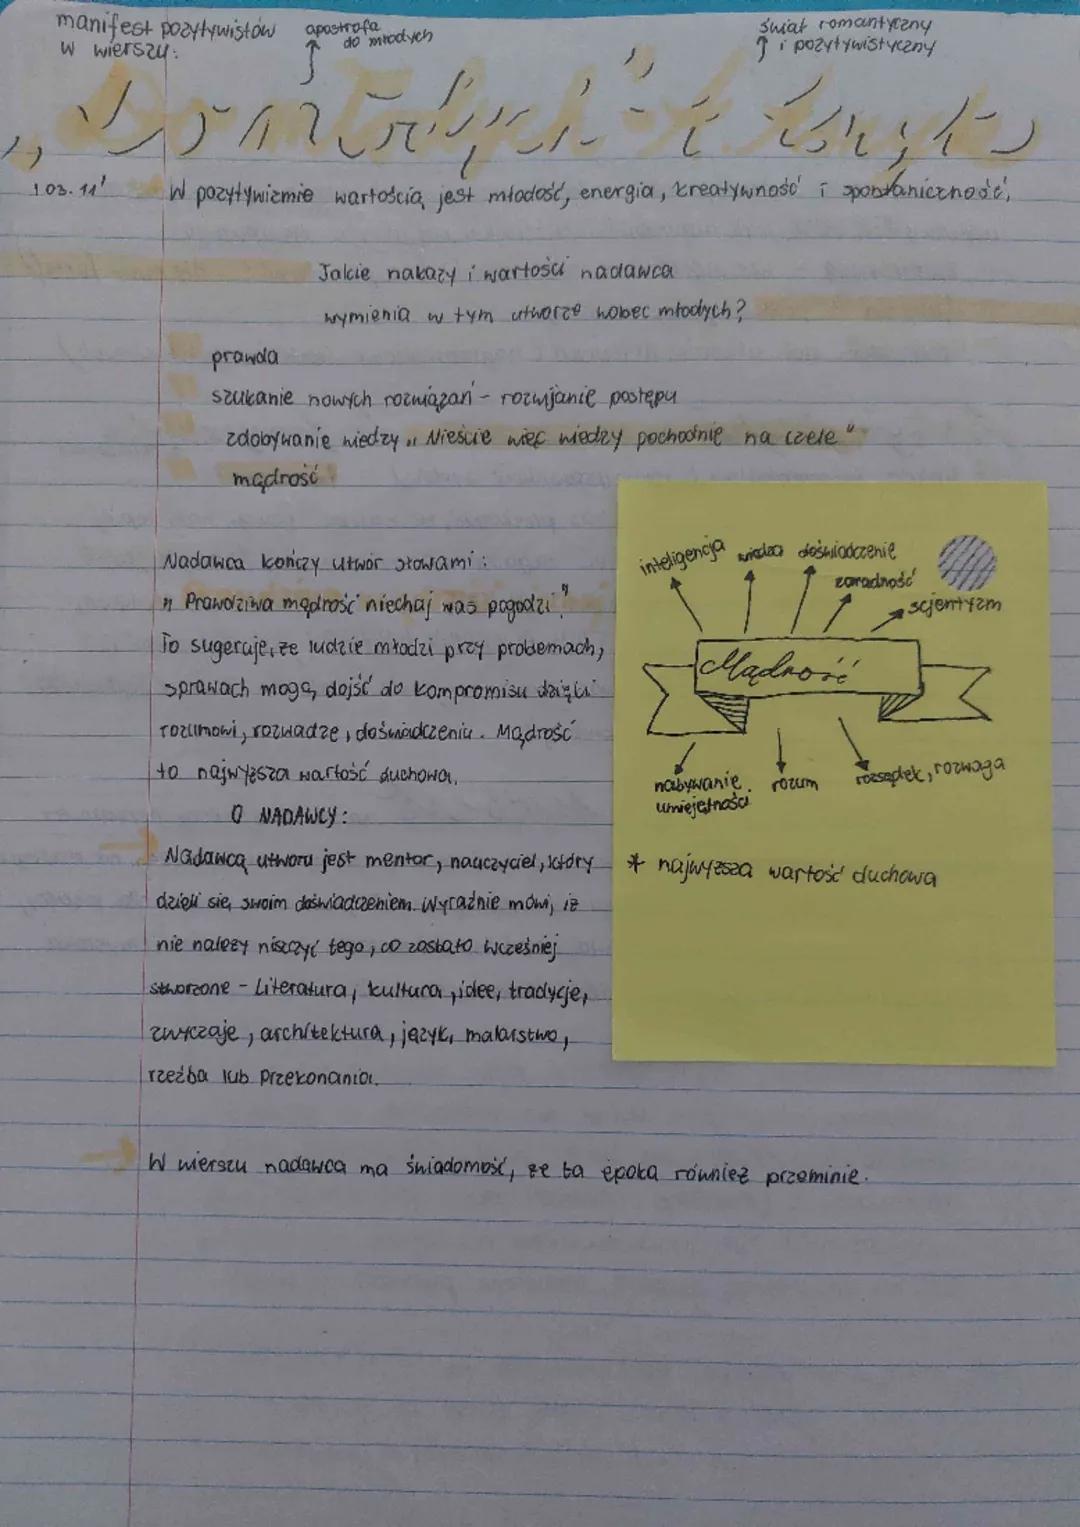 manifest pozytywistów
w wierszu:
apostrofa
do młodych
świat romantyczny
i pozytywistyczny
„Do młodych" A. Asnyk
W pozytywizmie wartością jest młodość, energia, kreatywność i spontaniczność.
Jakie nakazy i wartości nadawca
wymienia w tym utworze wobec młodych?
prawda
szukanie nowych rozwiązań - rozwijanie postępu
zdobywanie wiedzy „Nieście więc wiedzy pochodnię na czele"
mądrość
Nadawca kończy utwór słowami:
„Prawdziwa mądrość niechaj was pogodzi"
To sugeruje, że ludzie młodzi przy problemach,
sprawach mogą dojść do kompromisu dzięki
rozumowi, rozwadze, doświadczeniu. Mądrość
to najwyższa wartość duchowa.
O NADAWCY:
Nadawcą utworu jest mentor, nauczyciel, który
dzieli się swoim doświadczeniem. Wyraźnie mówi, iż
nie należy niszczyć tego, co zostało wcześniej
stworzone - Literatura, kultura, idee, tradycje,
zwyczaje, architektura, język, malarstwo,
rzeźba lub przekonania.
W wierszu nadawca ma świadomość, że ta epoka również przeminie.
inteligencja wiedza doświadczenie
zaradność
scjentyzm
Mądrość
nabywanie
umiejętności
rozum
rozsądek, rozwaga
* najwyższa wartość duchowa